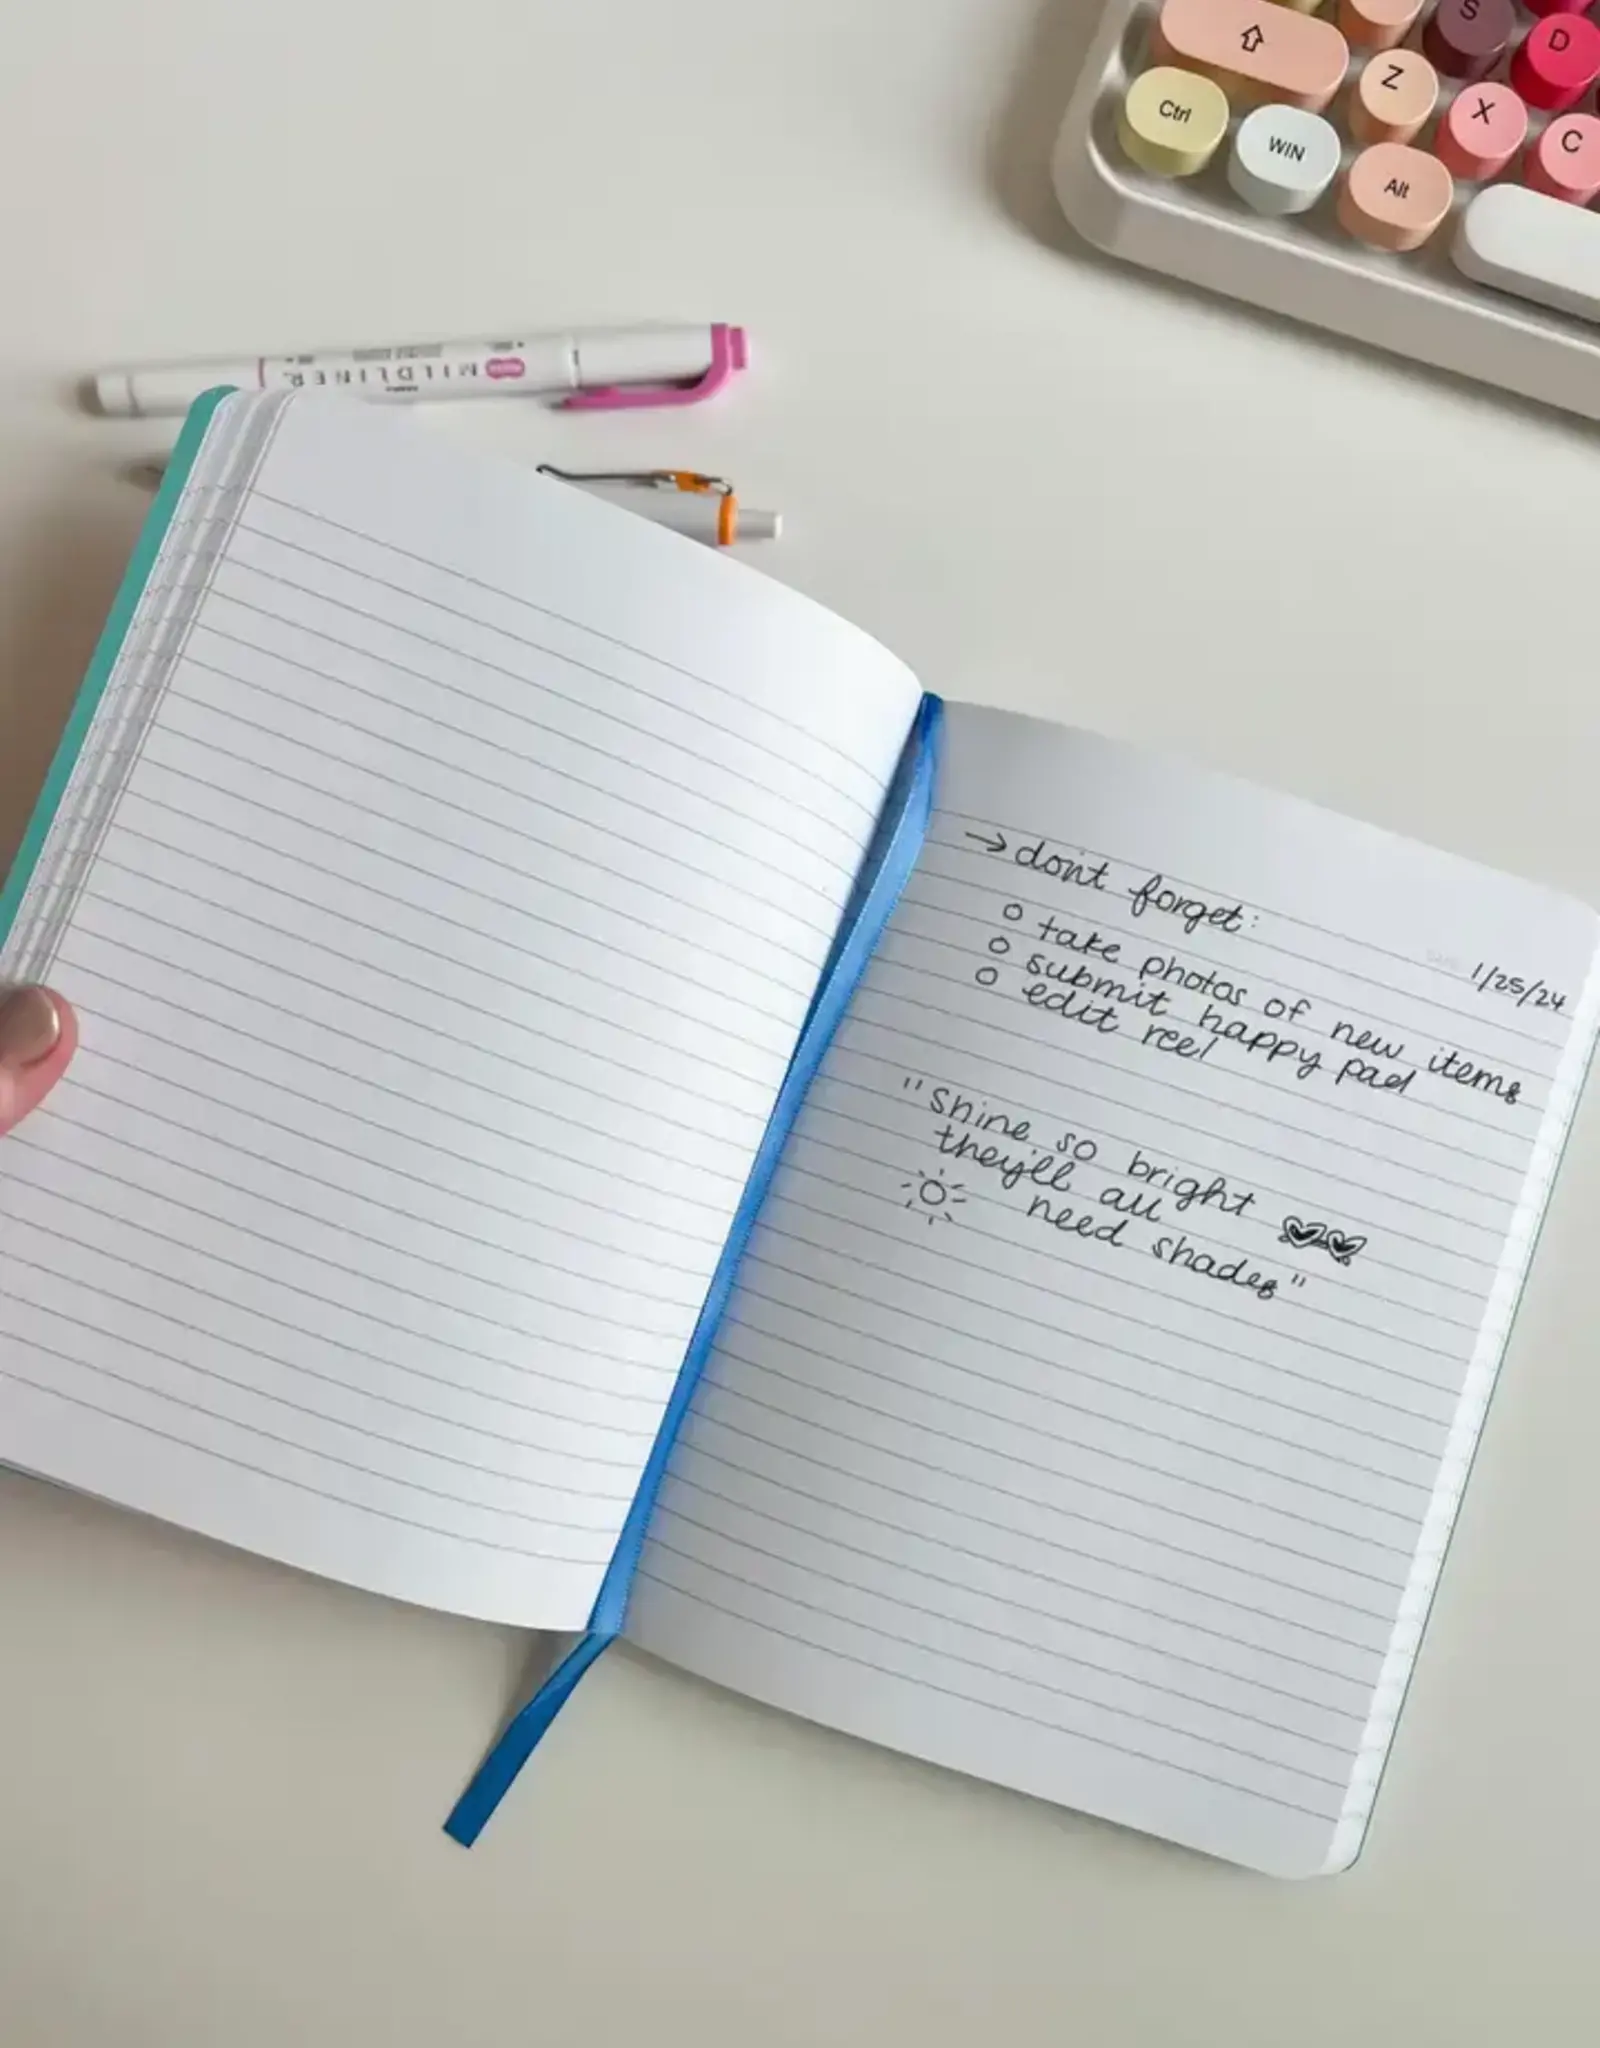 S
D
Z
X
C
Ctrl
WIN
Alt
MILDLINER
1/25/24
→ don't forget:
○ take photos of new items
○ submit happy pad
○ edit reel
"shine so bright
they'll all
need shades"